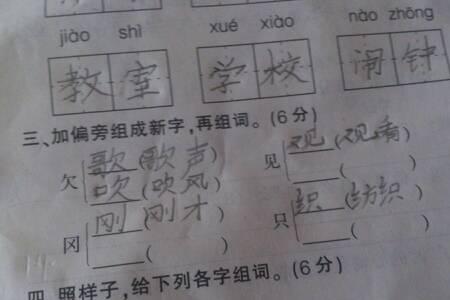 jiào shì xué xiào nào zhōng
教室 学校 闹钟
三、加偏旁组成新字,再组词。(6分)
欠 歌(歌声) 见 观(观看)
吹(吹风) ( )
冈 刚(刚才) 只 织(纺织)
( ) ( )
四、照样子,给下列各字组词。(6分)